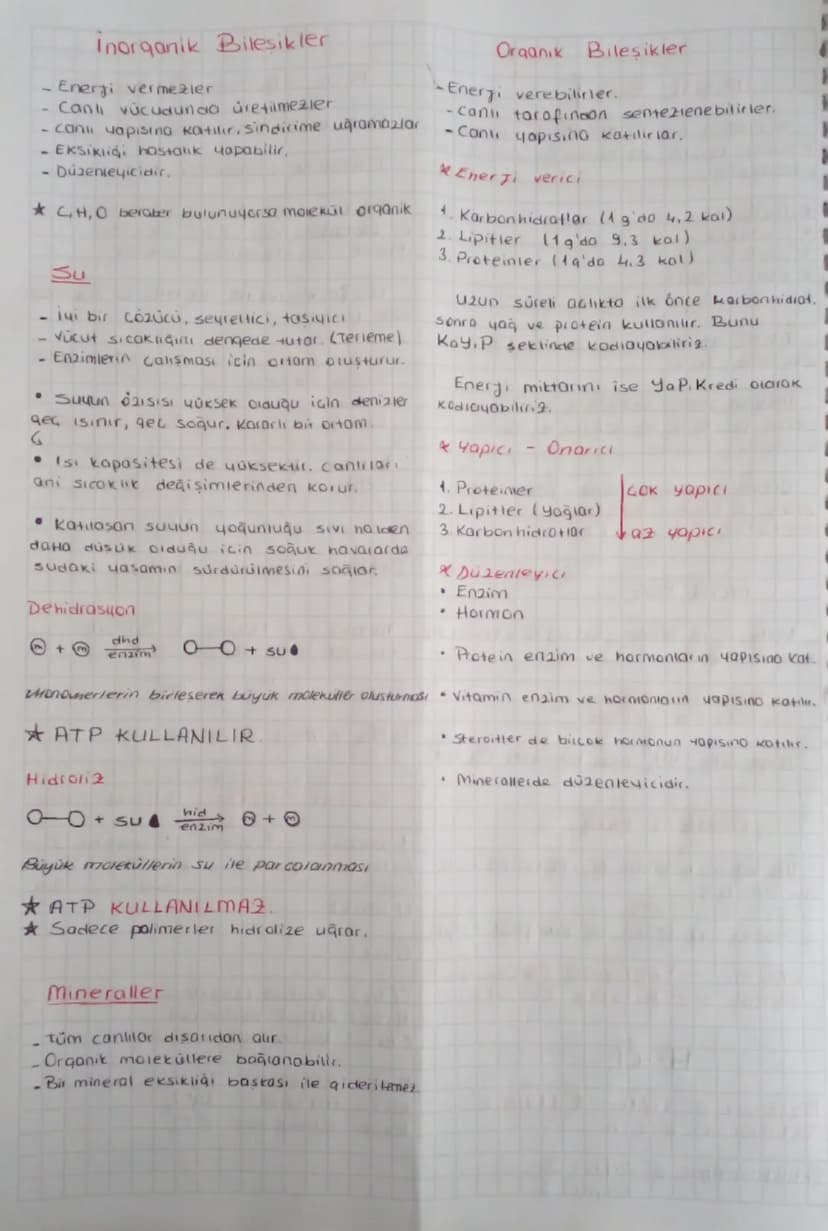 İnorganik Bileşikler
- Enerji vermezler
- Canlı vücudunda üretilmezler
- canlı yapısına katılır, sindirime uğramazlar
- Eksikliği hastalık yapabilir.
- Düzenleyicidir.
★ C, H, O beraber bulunuyorsa molekül organik
Su
- İyi bir çözücü, seyreltici, taşıyıcı
- Vücut sıcaklığını dengede tutar. (Terleme)
- Enzimlerin çalışması için ortam oluşturur.
• Suyun özısısı yüksek olduğu için denizler
geç ısınır, geç soğur. Kararlı bir ortam.
• Isı kapasitesi de yüksektir. canlıları
ani sıcaklık değişimlerinden korur.
• Katılaşan suyun yoğunluğu sıvı halden
daha düşük olduğu için soğuk havalarda
sudaki yaşamın sürdürülmesini sağlar.
Dehidrasyon
m + m dhd enzim → O—O + su
Monomerlerin birleşerek büyük moleküller oluşturması
★ ATP KULLANILIR.
Hidroliz
O—O + su hid enzim → m + m
Büyük moleküllerin su ile parçalanması
★ ATP KULLANILMAZ.
★ Sadece polimerler hidrolize uğrar.
Mineraller
- Tüm canlılar dışarıdan alır.
- Organik moleküllere bağlanabilir.
- Bir mineral eksikliği başkası ile giderilemez
Organik Bileşikler
- Enerji verebilirler.
- Canlı tarafından sentezlenebilirler.
- Canlı yapısına katılırlar.
* Enerji verici
1. Karbonhidratlar (1 g'da 4,2 kal)
2. Lipitler (1g'da 9,3 kal)
3. Proteinler (1g'da 4,3 kal)
Uzun süreli açlıkta ilk önce karbonhidrat,
sonra yağ ve protein kullanılır. Bunu
KaY.P şeklinde kodlayabiliriz.
Enerji miktarını ise YaP.Kredi olarak
kodlayabiliriz.
* Yapıcı - Onarıcı
1. Proteinler çok yapıcı
2. Lipitler (yağlar)
3. Karbonhidratlar az yapıcı
* Düzenleyici
• Enzim
• Hormon
• Protein enzim ve hormonların yapısına kat.
• Vitamin enzim ve hormonların yapısına katılır.
• Steroitler de birçok hormonun yapısına katılır.
• Minerallerde düzenleyicidir.